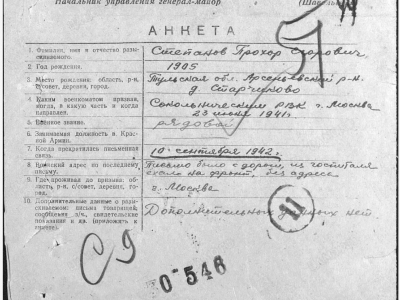 Начальник управления генерал-майор
АНКЕТА
1. Фамилия, имя и отчество разыскиваемого.
Степанов Прохор Егорович,
2. Год рождения.
1905
3. Место рождения: область, р-н, с/совет, деревня, город.
Тульская обл. Арсеньевский р-н.
д. Старчуково
4. Каким военкоматом призван, когда, в какую часть и когда направлен.
Сокольническим РВК г. Москва
23 июня 1941 г.
5. звание.
рядовой
6. Занимаемая должность в Красной Армии.
7. Когда прекратилась письменная связь.
10 сентября 1942 г.
8. адрес по последнему письму.
Письмо было с дороги, из госпиталя
ехал на фронт. без адреса
9. Где проживал до призыва: область, р-н, с/совет, деревня, город.
г. Москва
10. Дополнительные данные о разыскиваемом: письма товарищей, сообщения в/ч, свидетельские показания и др. (приложить к анкете).
Дополнительных данных нет
11
С 9
0-546